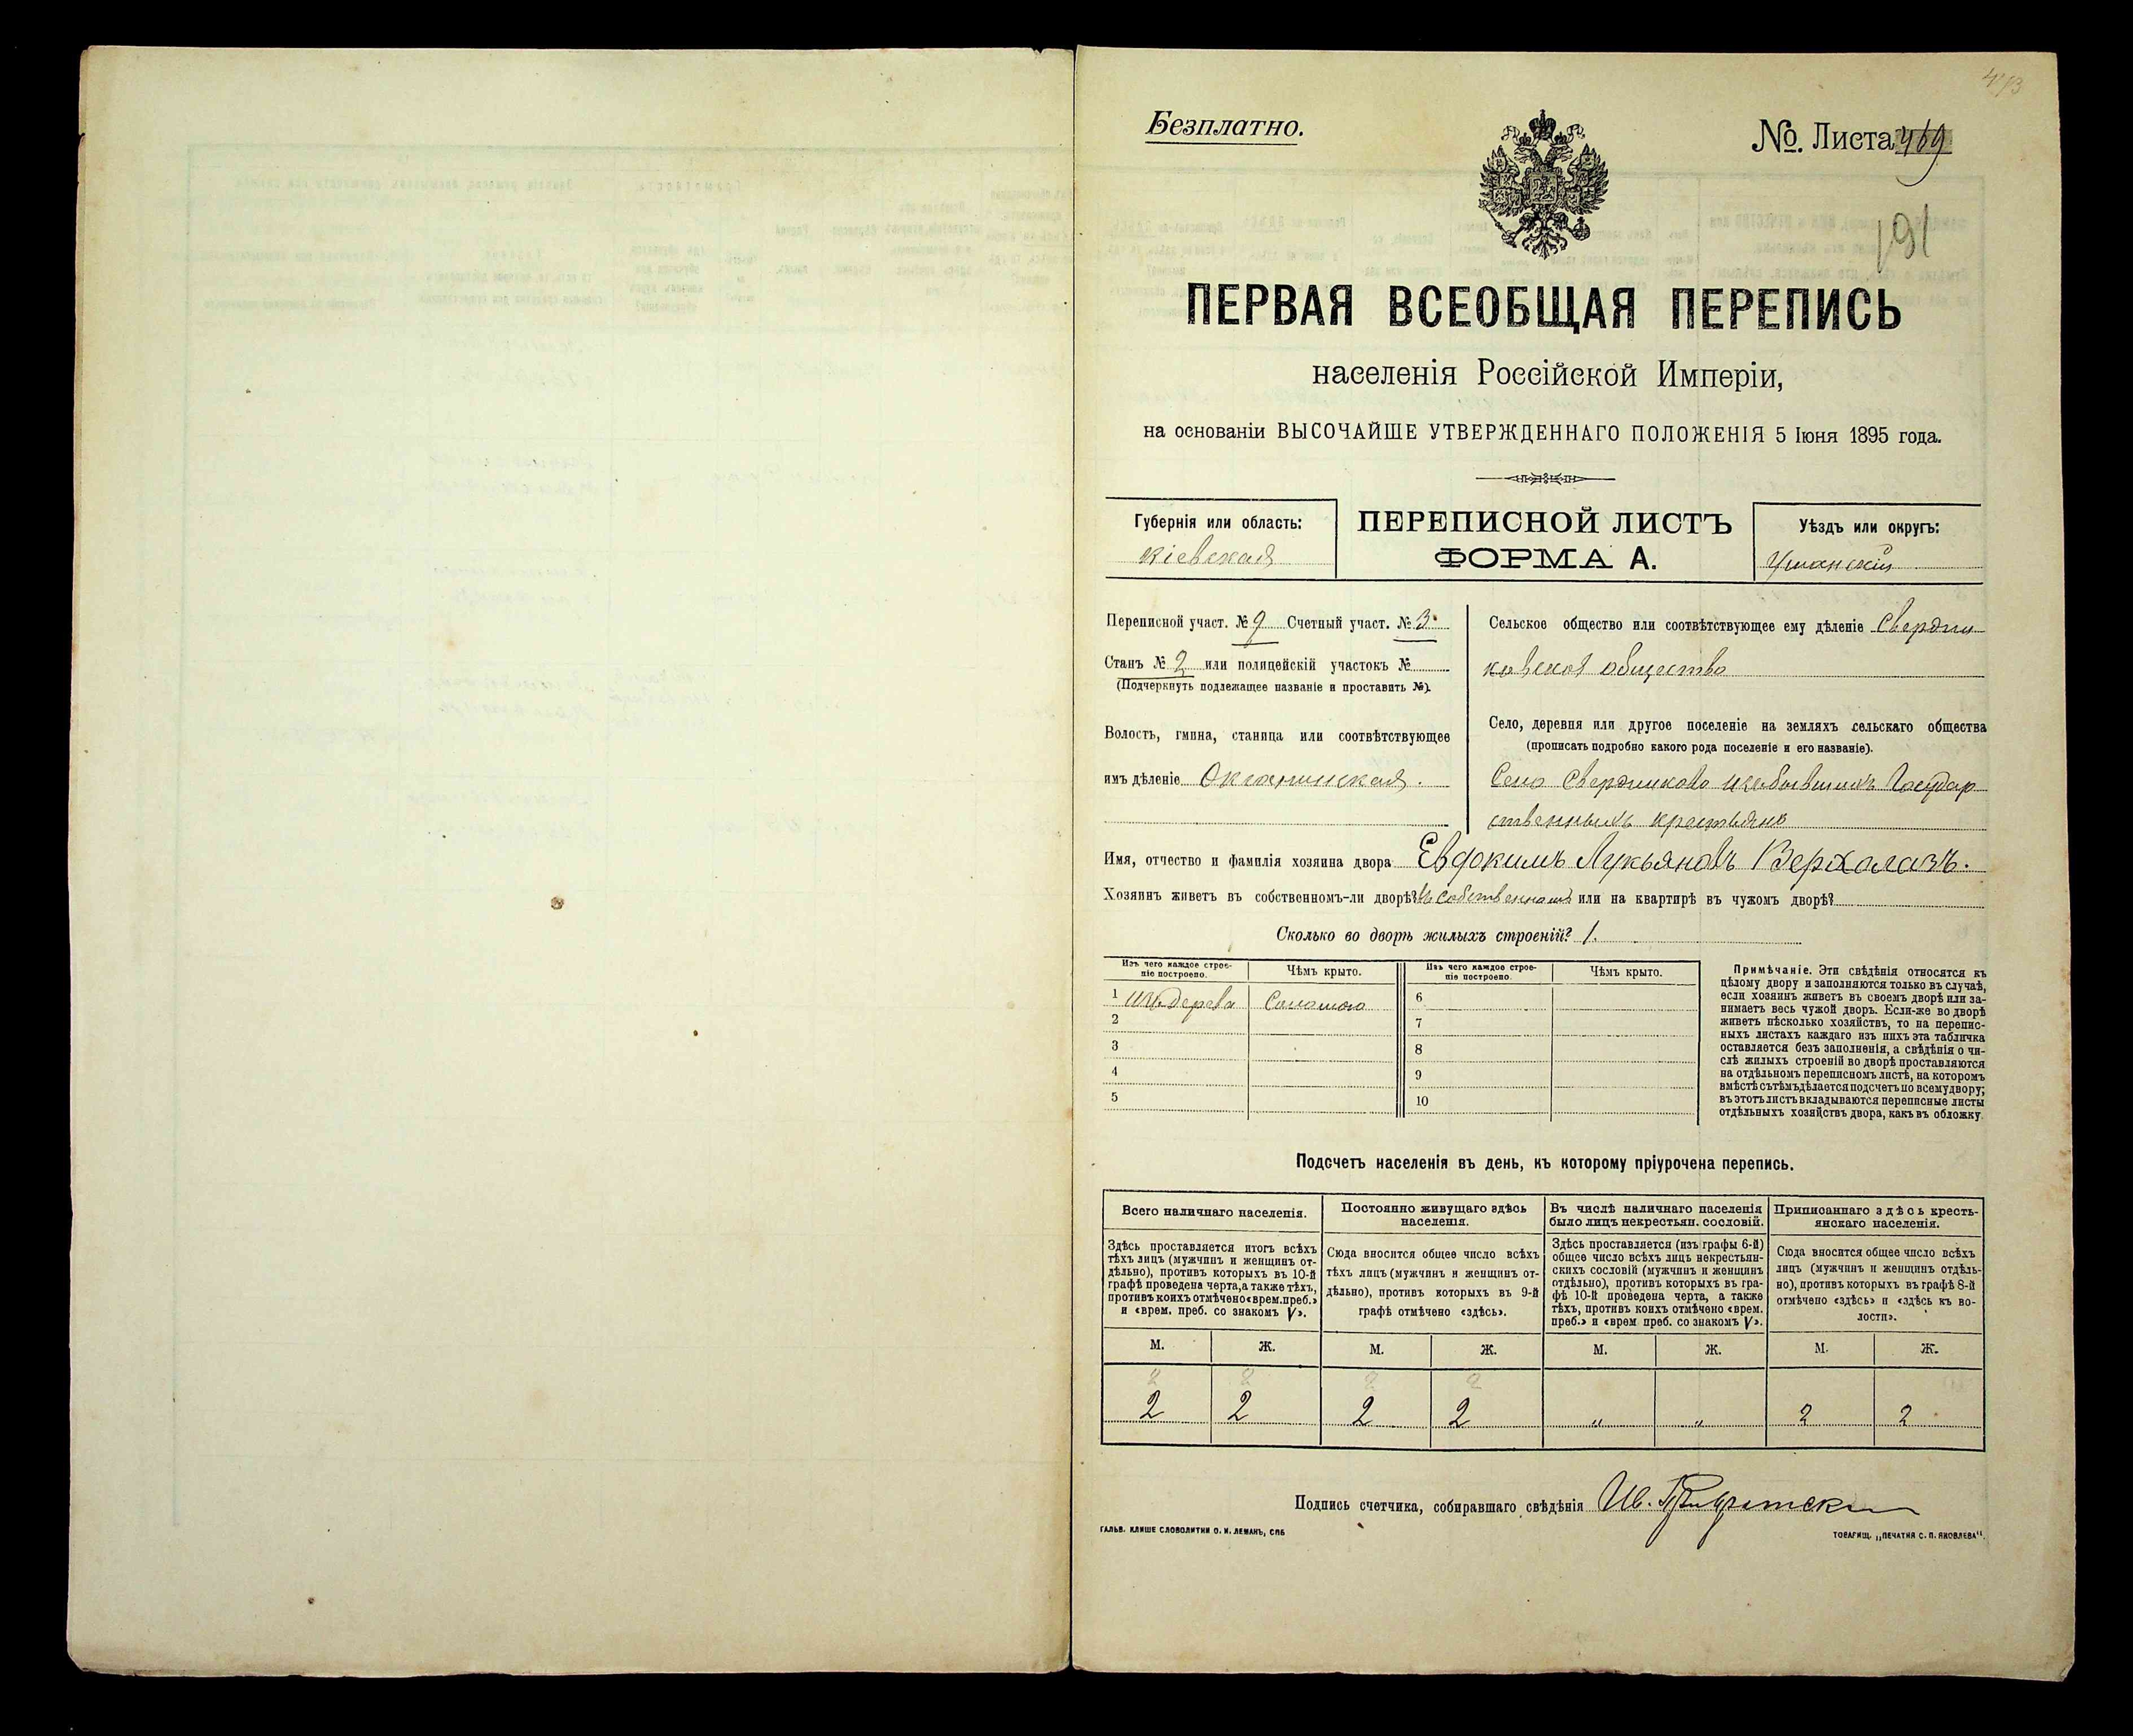 Безплатно.
№. Листа 469
191
ПЕРВАЯ ВСЕОБЩАЯ ПЕРЕПИСЬ
населенія Россійской Имперіи,
на основаніи ВЫСОЧАЙШЕ УТВЕРЖДЕННАГО ПОЛОЖЕНІЯ 5 Іюня 1895 года.
Губернія или область:
Кіевская
ПЕРЕПИСНОЙ ЛИСТЪ
ФОРМА А.
Уѣздъ или округъ:
Уманскій
Переписной участ. № 9 Счетный участ. № 3.
Станъ № 2 или полицейскій участокъ №
(Подчеркнуть подлежащее названіе и проставить №).
Волость, гмина, станица или соотвѣтствующее
имъ дѣленіе Окнинская.
Сельское общество или соотвѣтствующее ему дѣленіе Свердли
ковское общество
Село, деревня или другое поселеніе на земляхъ сельскаго общества
(прописать подробно какого рода поселеніе и его названіе).
Село Свердликово изъ бывшихъ Государ
ственныхъ крестьянъ
Имя, отчество и фамилія хозяина двора Евдокимъ Лукьяновъ Верхолазъ.
Хозяинъ живетъ въ собственномъ-ли дворѣ? въ собственномъ или на квартирѣ въ чужомъ дворѣ?
Сколько во дворѣ жилыхъ строеній? 1.
Изъ чего каждое строе-
ніе построено.
Чѣмъ крыто.
Изъ чего каждое строе-
ніе построено.
Чѣмъ крыто.
1 изъ дерева Соломою
2
3
4
5
6
7
8
9
10
Примѣчаніе. Эти свѣдѣнія относятся къ
цѣлому двору и заполняются только въ случаѣ,
если хозяинъ живетъ въ своемъ дворѣ или за-
нимаетъ весь чужой дворъ. Если-же во дворѣ
живетъ нѣсколько хозяйствъ, то на перепис-
ныхъ листахъ каждаго изъ нихъ эта табличка
оставляется безъ заполненія, а свѣдѣнія о чи-
слѣ жилыхъ строеній во дворѣ проставляются
на отдѣльномъ переписномъ листѣ, на которомъ
вмѣстѣ съ тѣмъ дѣлается подсчетъ по всему двору;
въ этотъ листъ вкладываются переписные листы
отдѣльныхъ хозяйствъ двора, какъ въ обложку.
Подсчетъ населенія въ день, къ которому пріурочена перепись.
Всего наличнаго населенія.
Здѣсь проставляется итогъ всѣхъ
тѣхъ лицъ (мужчинъ и женщинъ от-
дѣльно), противъ которыхъ въ 10-й
графѣ проведена черта, а также тѣхъ,
противъ коихъ отмѣчено «врем. преб.»
и «врем. преб. со знакомъ V».
Постоянно живущаго здѣсь
населенія.
Сюда вносится общее число всѣхъ
тѣхъ лицъ (мужчинъ и женщинъ от-
дѣльно), противъ которыхъ въ 9-й
графѣ отмѣчено «здѣсь».
Въ числѣ наличнаго населенія
было лицъ некрестьян. сословій.
Здѣсь проставляется (изъ графы 6-й)
общее число всѣхъ лицъ некрестьян-
скихъ сословій (мужчинъ и женщинъ
отдѣльно), противъ которыхъ въ гра-
фѣ 10-й проведена черта, а также
тѣхъ, противъ коихъ отмѣчено «врем.
преб.» и «врем преб. со знакомъ V».
Приписаннаго здѣсь кресть-
янскаго населенія.
Сюда вносится общее число всѣхъ
лицъ (мужчинъ и женщинъ отдѣль-
но), противъ которыхъ въ графѣ 8-й
отмѣчено «здѣсь» и «здѣсь къ во-
лости».
М. Ж. М. Ж. М. Ж. М. Ж.
2 2 2 2
2 2 2 2 „ „ 2 2
Подпись счетчика, собиравшаго свѣдѣнія Ив.
ГАЛЬВ. КЛИШЕ СЛОВОЛИТНИ О. И. ЛЕМАНЪ, СПБ
ТОВАРИЩ. „ПЕЧАТНЯ С. П. ЯКОВЛЕВА".